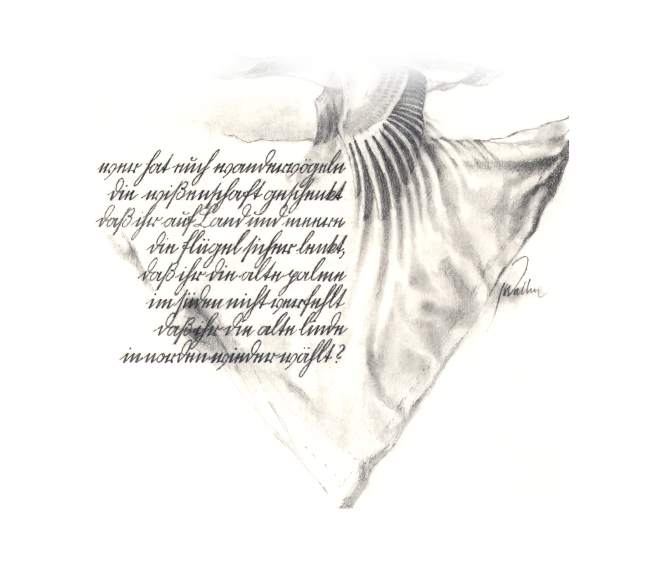 wer hat euch wandervögeln
die wißenschaft geschenkt
daß ihr auf Land und meere
die flügel sicher lenkt,
daß ihr die alte palme
im süden nicht verfehlt
daß ihr die alte linde
in norden wieder wählt?